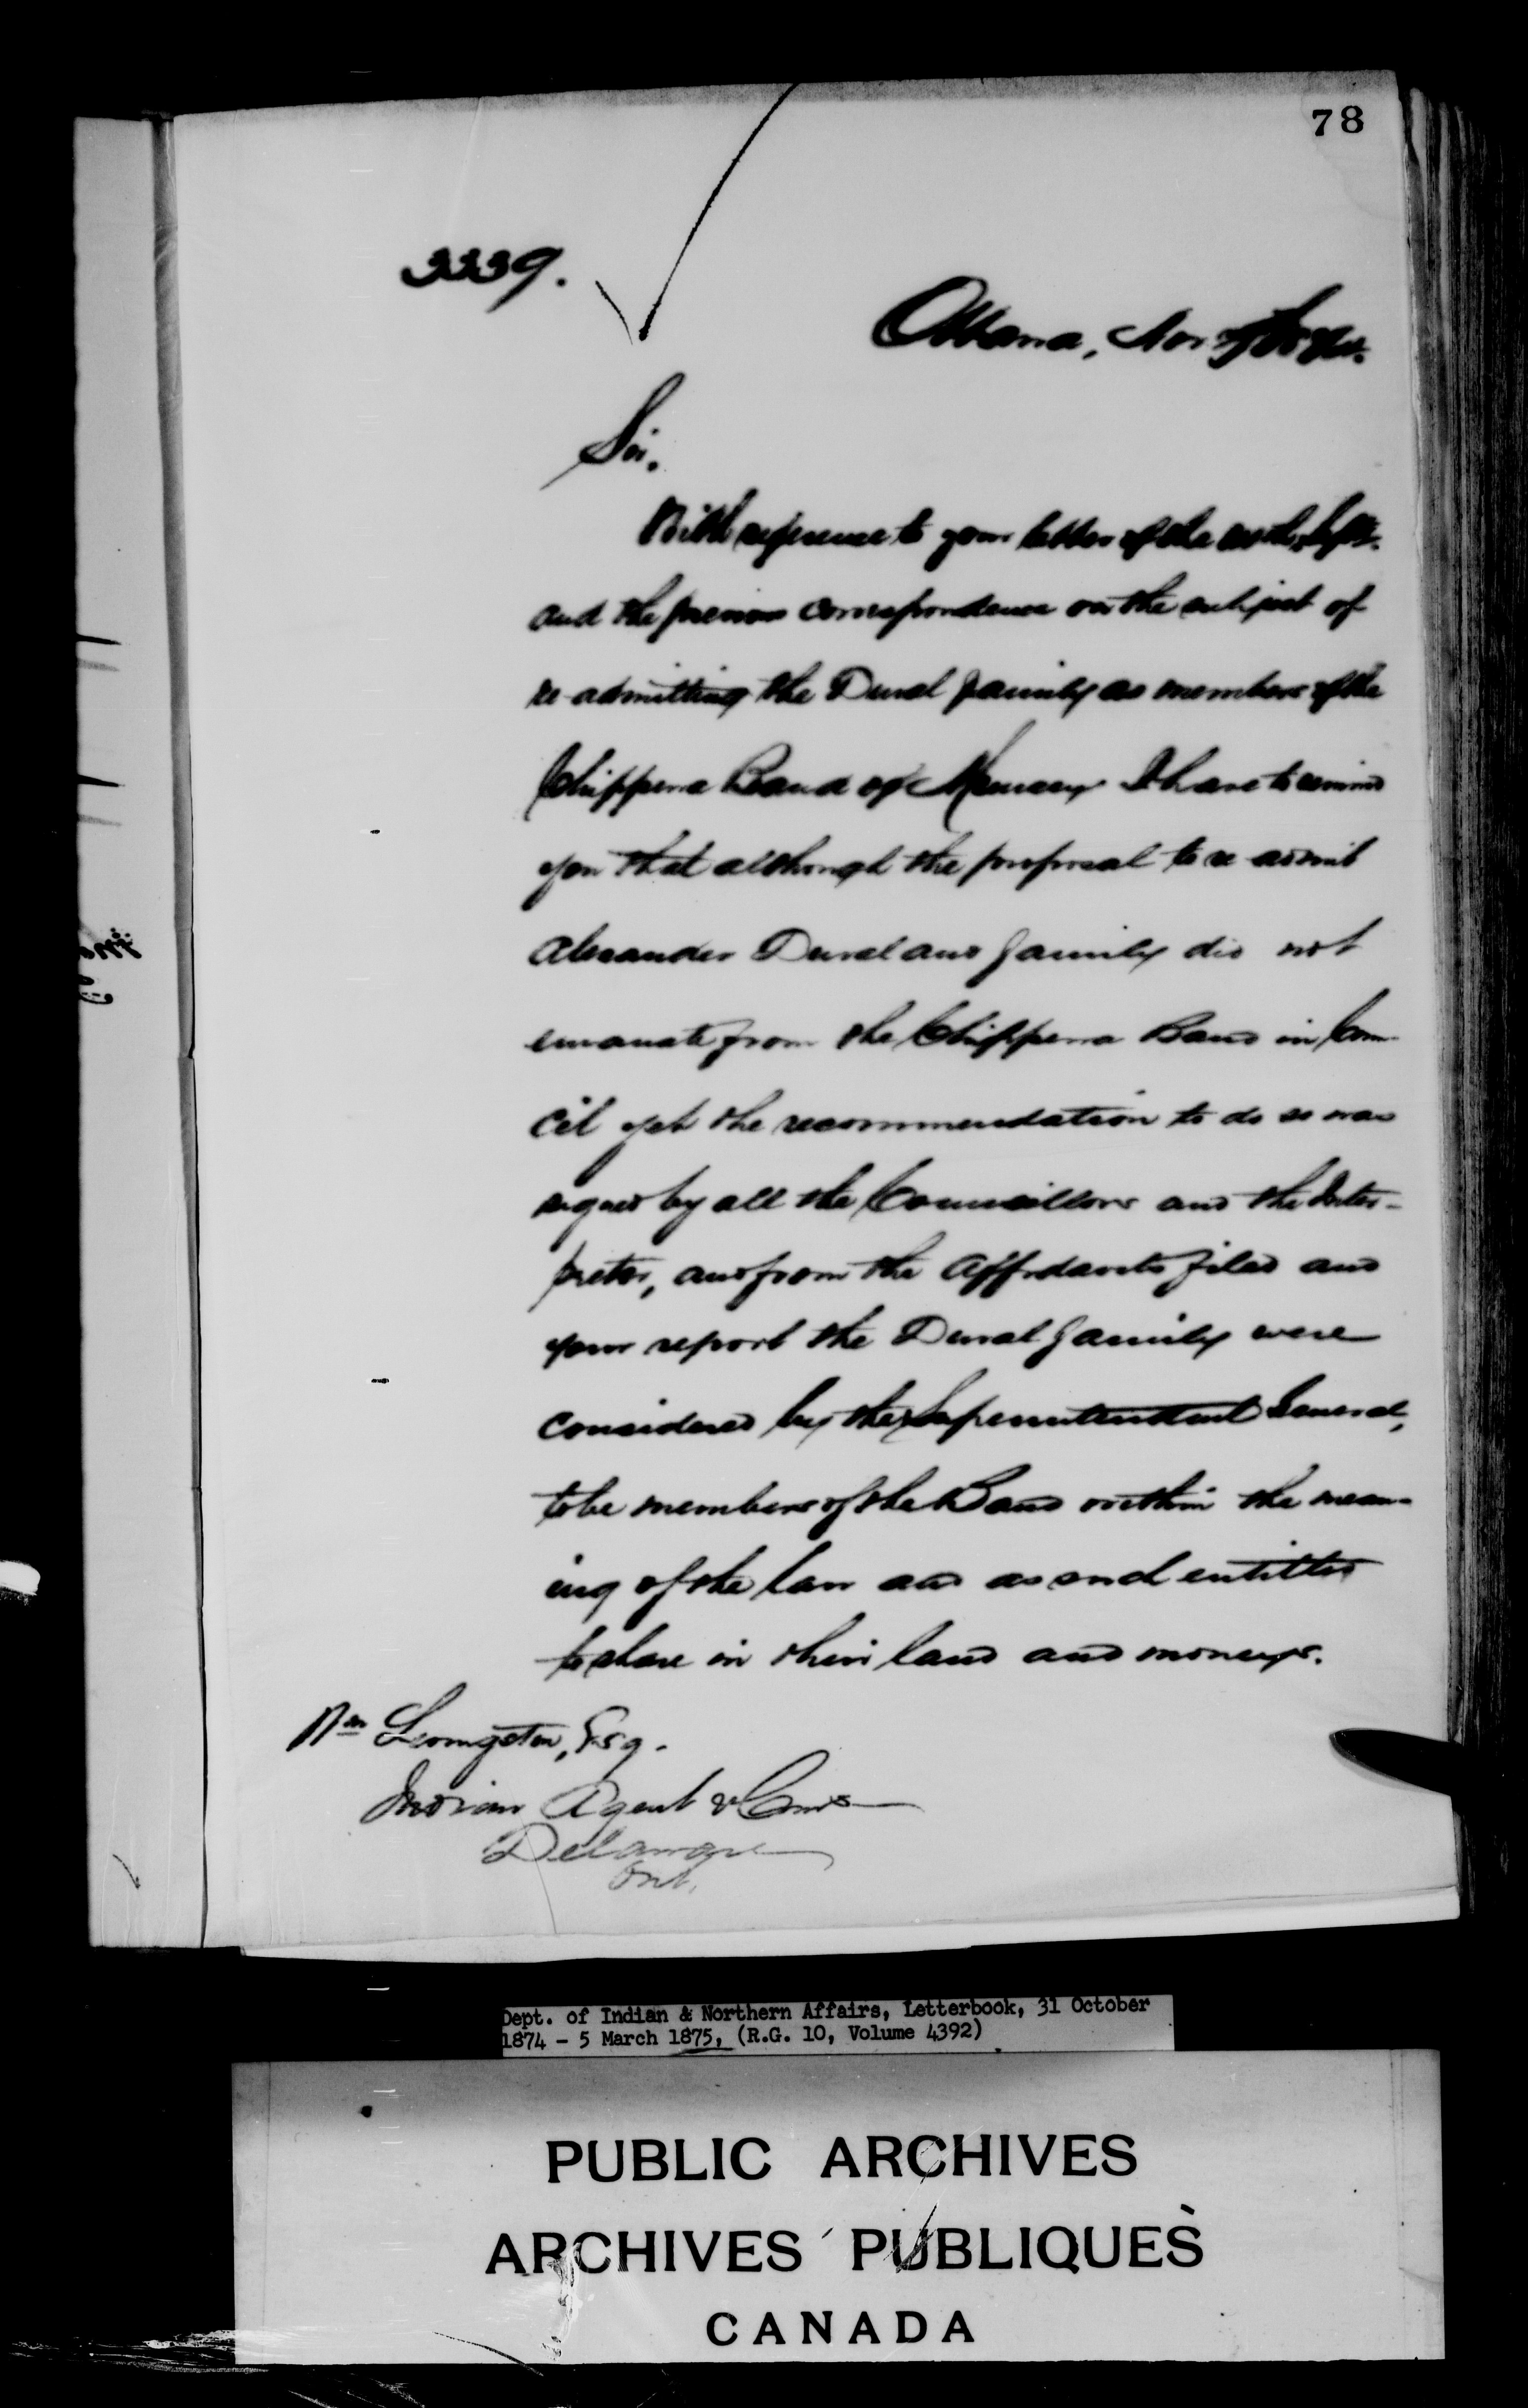 78
3339.
Ottawa, Nov
Sir,
With reference to your letter of the Sept.
and the previous correspondence on the subject of
re-admitting the Duval family as members of the
Chippewa Band of Muncey I have to remind
you that although the proposal to re-admit
Alexander Duval and family did not
emanate from the Chippewa Band in Coun-
cil yet the recommendation to do so was
signed by all the Councillors and the Inter-
preter, and from the Affidavits filed and
your report the Duval family were
considered by the Superintendent General,
to be members of the Band within the mean-
ing of the law and as such entitled
to share in their land and moneys.
Wm Livingston, Esq.
Indian Agent &
Delaware
Ont.
Dept. of Indian & Northern Affairs, Letterbook, 31 October
1874 - 5 March 1875, (R.G. 10, Volume 4392)
PUBLIC ARCHIVES
ARCHIVES PUBLIQUES
CANADA